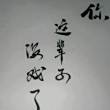 你
这辈子
没戏了